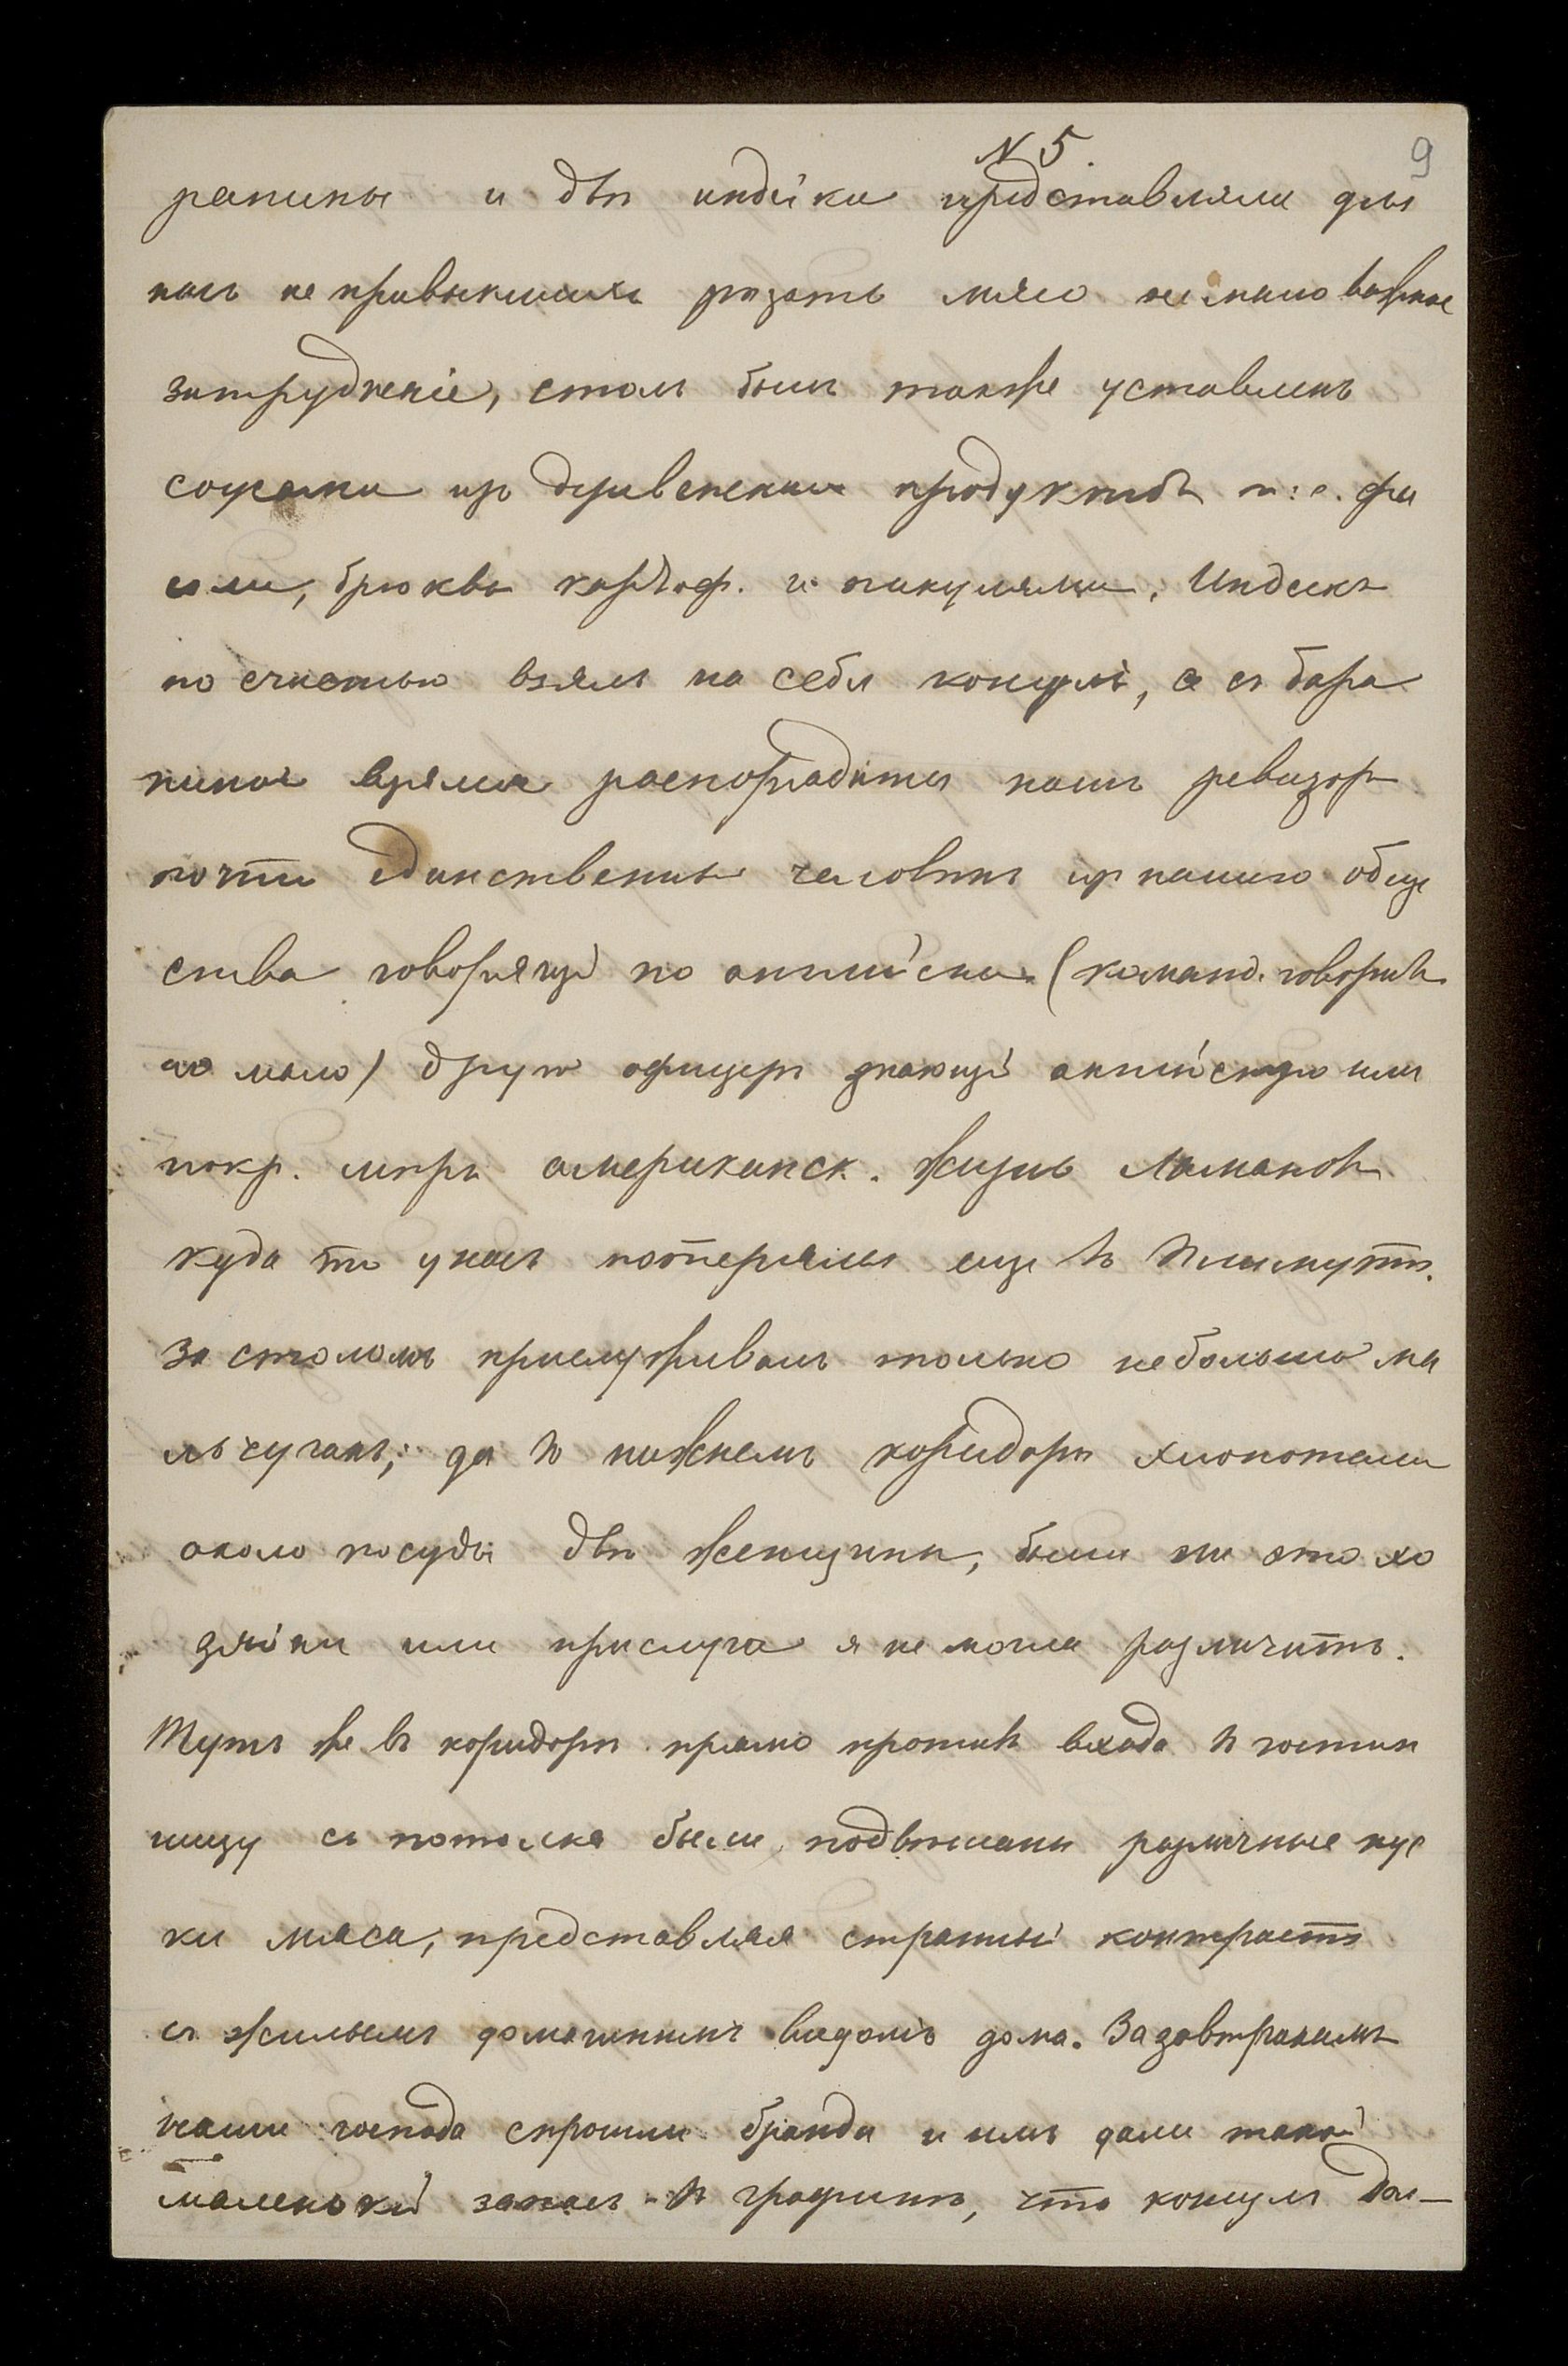 N 5.
9
ранины и двѣ индѣйки представляли для
насъ не привыкшихъ рѣзать мясо не маловажное
затрудненіе, столъ былъ также уставленъ
соусами изъ деревенскихъ продуктовъ т: е. фа
соли, брюквы картоф. и пикулями. Индеекъ
по счастью взялъ на себя консулъ, а съ бара
ниной взялся распорядиться нашъ ревизоръ
почти единственный человѣкъ изъ нашего обще
ства говорящій по англійски (команд. говоритъ
но мало) другой офицеръ знающій англійскую или
покр. мѣрѣ американск. жизнь Ломановъ
куда то у насъ потерялся еще въ Плимутѣ.
За столомъ прислуживалъ только небольшой ма
льчуганъ; да въ нижнемъ коридорѣ хлопотали
около посуды двѣ женщины, были ли это хо
зяйки или прислуга я не могла различить.
Тутъ же въ коридорѣ прямо противъ входа въ гостин
ницу съ потолка были подвѣшаны различные кус
ки мяса, представляя странный контрастъ
съ жилымъ домашнимъ видомъ дома. За завтракомъ
наши господа спросили бранди и имъ дали такой
маленькій запасъ въ графинѣ, что консулъ дол-